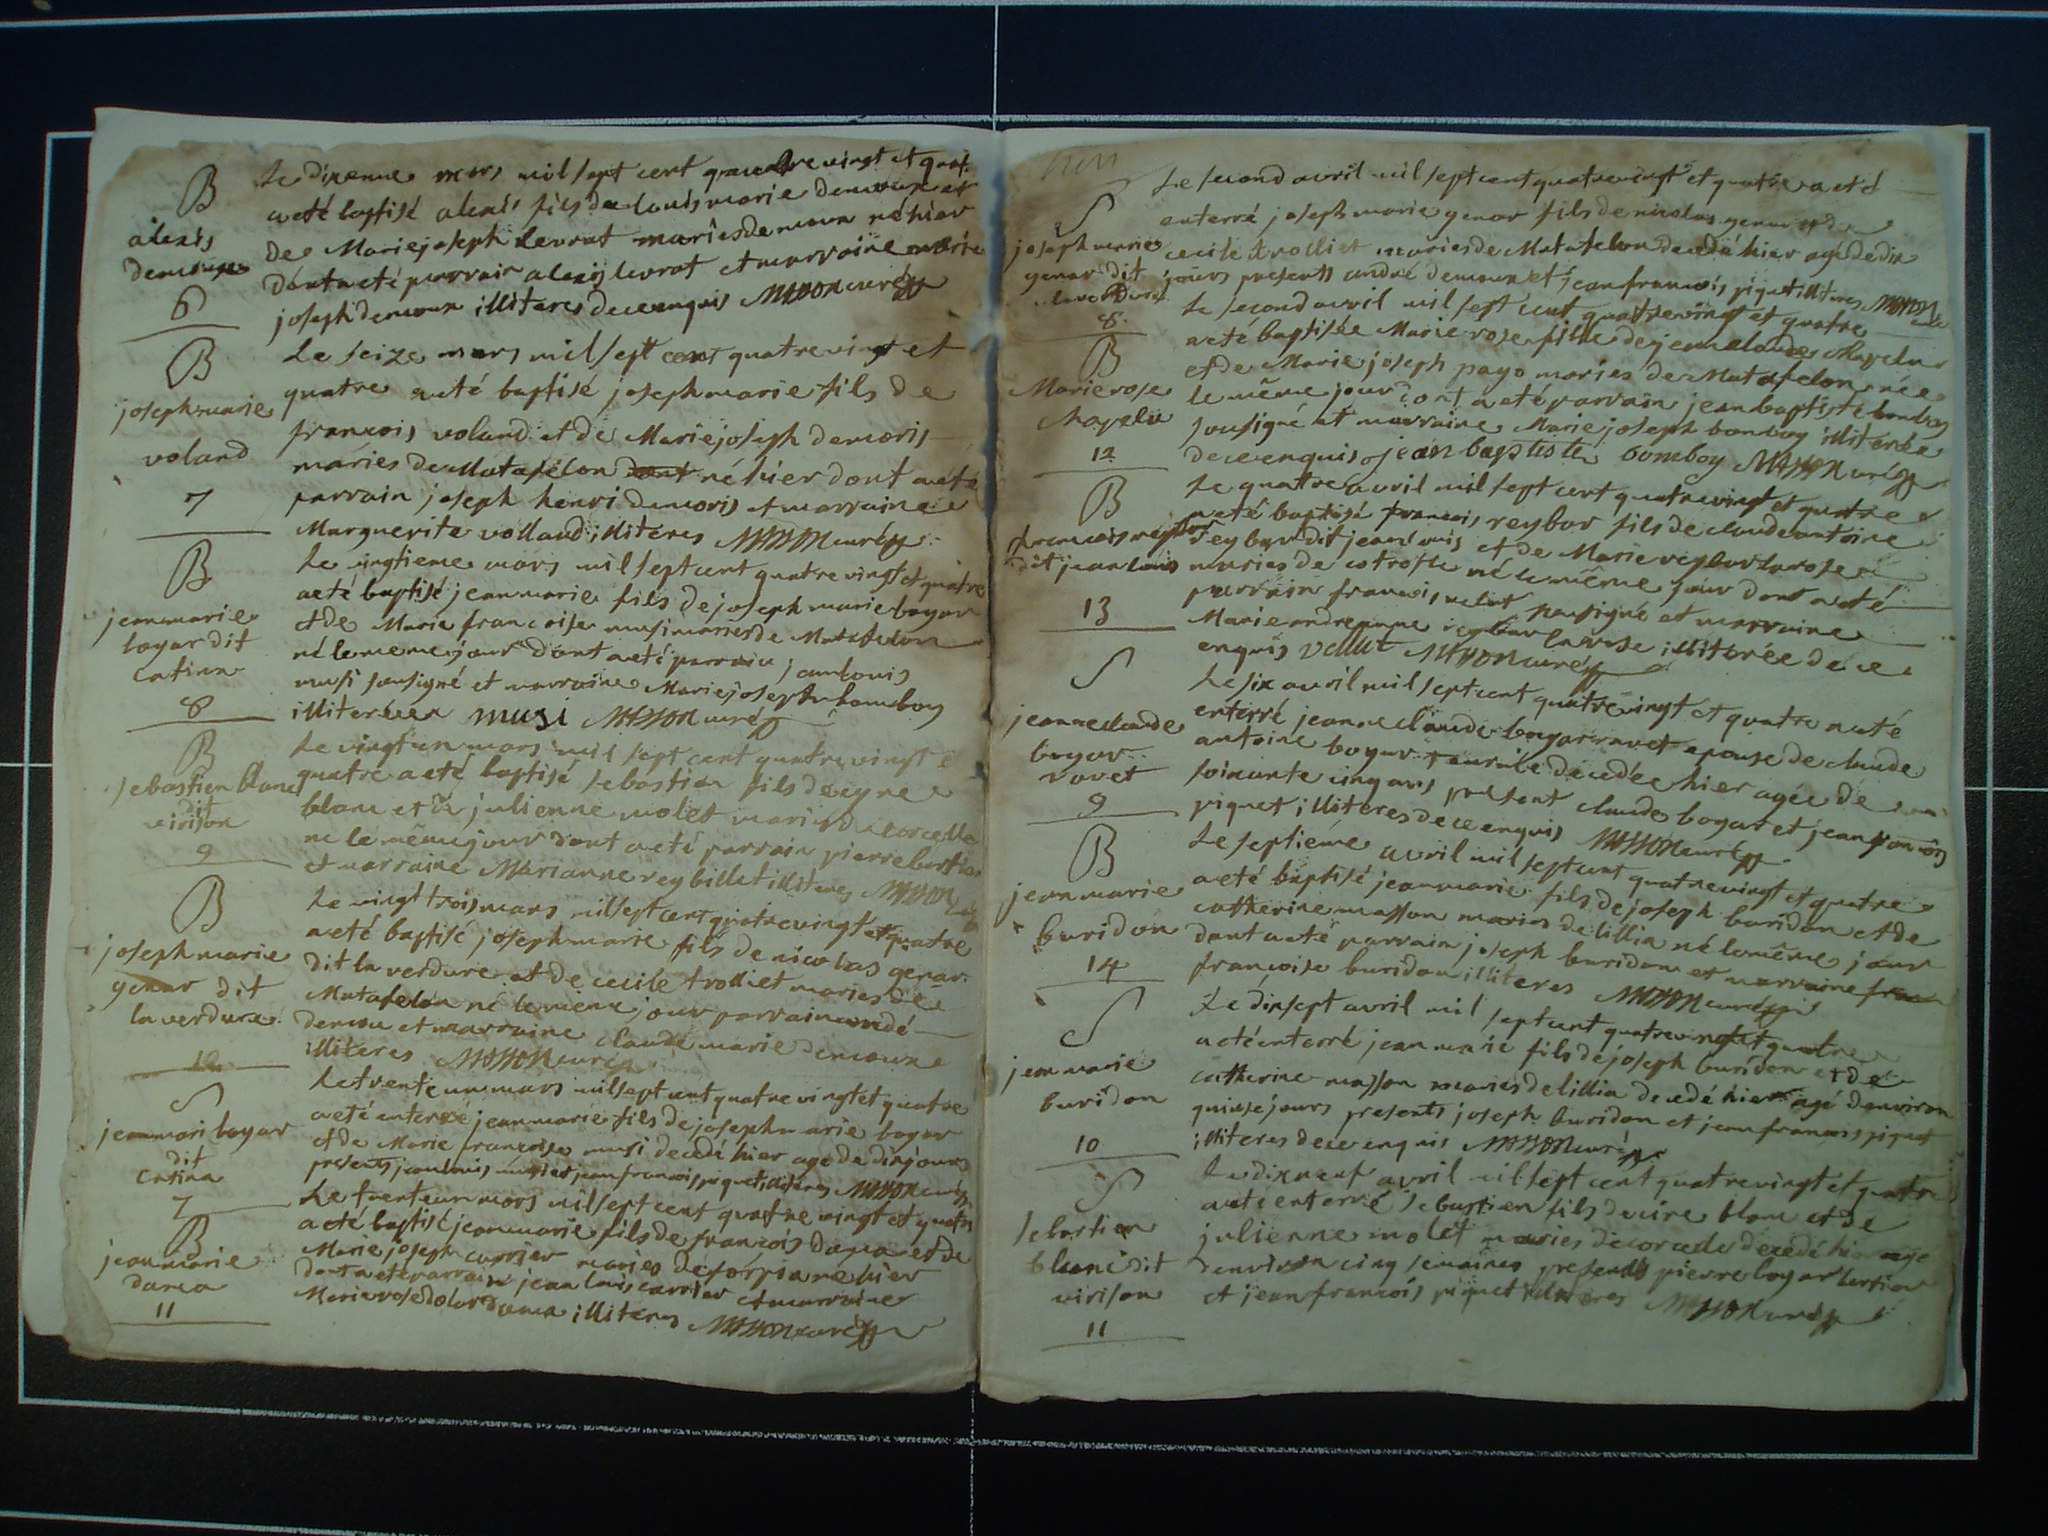 B
alexis
demoux
6
Le dixenne mars mil sept cent quatre vingt et quat.
a eté baptisé alexis fils de louis marie demoux et
de Marie joseph levrat mariés de moux né hier
dont a eté parrain alexis levrat et marraine marie
joseph demoux illiteres de ce enquis MASSON curé
B
joseph marie
voland
7
Le seize mars mil sept cent quatre vingt et
quatre a eté baptisé joseph marie fils de
francois voland et de Marie joseph demoris
maries de Matafelon dont né hier dont a eté
parrain joseph henri demoris et marraine
Marguerite volland illiteres MASSON curé
B
jean marie
bogar dit
catina
8
Le vingtieme mars mil sept cent quatre vingt et quatre
a eté baptisé jean marie fils de joseph marie bogar
et de Marie francoise musi maries de Matafelon
né le meme jour dont a eté parrain jean louis
musi sousigné et marraine Marie joseph bomboy
illiterée musi MASSON curé
B
sebastien blanc
dit
virison
9
Le vingt un mars mil sept cent quatre vingt
quatre a eté baptisé sebastien fils de
blanc et de julienne molet mariés de corcelle
né le même jour dont a eté parrain pierre
et marraine Marianne reybillet illiteres MASSON
B
joseph marie
genar dit
la verdure
10
Le vingt trois mars mil sept cent quatre vingt et quatre
a eté baptisé joseph marie fils de nicolas genar
dit la verdure et de cecile trolliet maries de
Matafelon né le meme jour parrain andé
demou et marraine claude marie demoux
illiteres MASSON curé
S
jean mari bogar
dit
catina
7
Le trente un mars mil sept cent quatre vingt et quatre
a eté enterré jean marie fils de joseph marie bogar
et de Marie francoise musi decedé hier age de dix jours
presents jean louis musi et jean francois piquet illiteres MASSON curé
B
jean marie
dama
11
Le trente un mars mil sept cent quatre vingt et quatre
a eté baptisé jean marie fils de francois dama et de
Marie joseph carrier maries de corpia né hier
dont a eté parrain jean louis carrier et marraine
Marie rose dama illiteres MASSON curé
S
joseph marie
genar dit
8
Le second avril mil sept cent quatre vingt et quatre a eté
enterré joseph marie genar fils de nicolas genar et de
cecile trolliet maries de Matafelon decedé hier agé de dix
jours presents andré demoux et jean francois piquet illiteres MASSON
B
Marie rose
chapelu
12
Le second avril mil sept cent quatre vingt et quatre
a eté baptisée Marie rose fille de jean claude chapelu
et de Marie joseph payo maries de Matafelon née
le même jour dont a eté parrain jean baptiste bomboy
sousigné et marraine Marie joseph bomboy illiterée
de ce enquis jean baptiste bomboy MASSON curé
B
francois reybor
dit jean louis
13
Le quatre avril mil sept cent quatre vingt et quatre
a eté baptisé francois reybor fils de claude antoine
reybor dit jean louis et de Marie reybor larose
maries de né le même jour dont a eté
parrain francois vellut sousigné et marraine
Marie andreanne reybor larose illiterée de ce
enquis vellut MASSON curé
S
jeanne claude
bogar
ravet
9
Le six avril mil sept cent quatre vingt et quatre a eté
enterré jeanne claude bogar ravet epouse de claude
antoine bogar decedée hier agée de
soixante cinq ans present claude bogar et jean francois
piquet illiteres de ce enquis MASSON curé
B
jean marie
buridon
14
Le septiéme avril mil sept cent quatre vingt et quatre
a eté baptisé jean marie fils de joseph buridon et de
catherine masson maries de lillia né le même jour
dont a eté parrain joseph buridon et marraine
francoise buridon illiteres MASSON curé
S
jean marie
buridon
10
Le dixsept avril mil sept cent quatre vingt et quatre
a eté enterré jean marie fils de joseph buridon et de
catherine masson maries de lillia decedé hier agé denviron
quinse jours presents joseph buridon et jean francois piquet
illiteres de ce enquis MASSON curé
S
sebastien
blanc dit
virison
11
Le dixneuf avril mil sept cent quatre vingt et quatre
a eté enterré sebastien fils de cire blanc et de
julienne molet maries de corcele decedé hier age
denviron cinq semaines presents pierre bogar
et jean francois piquet illiteres MASSON curé